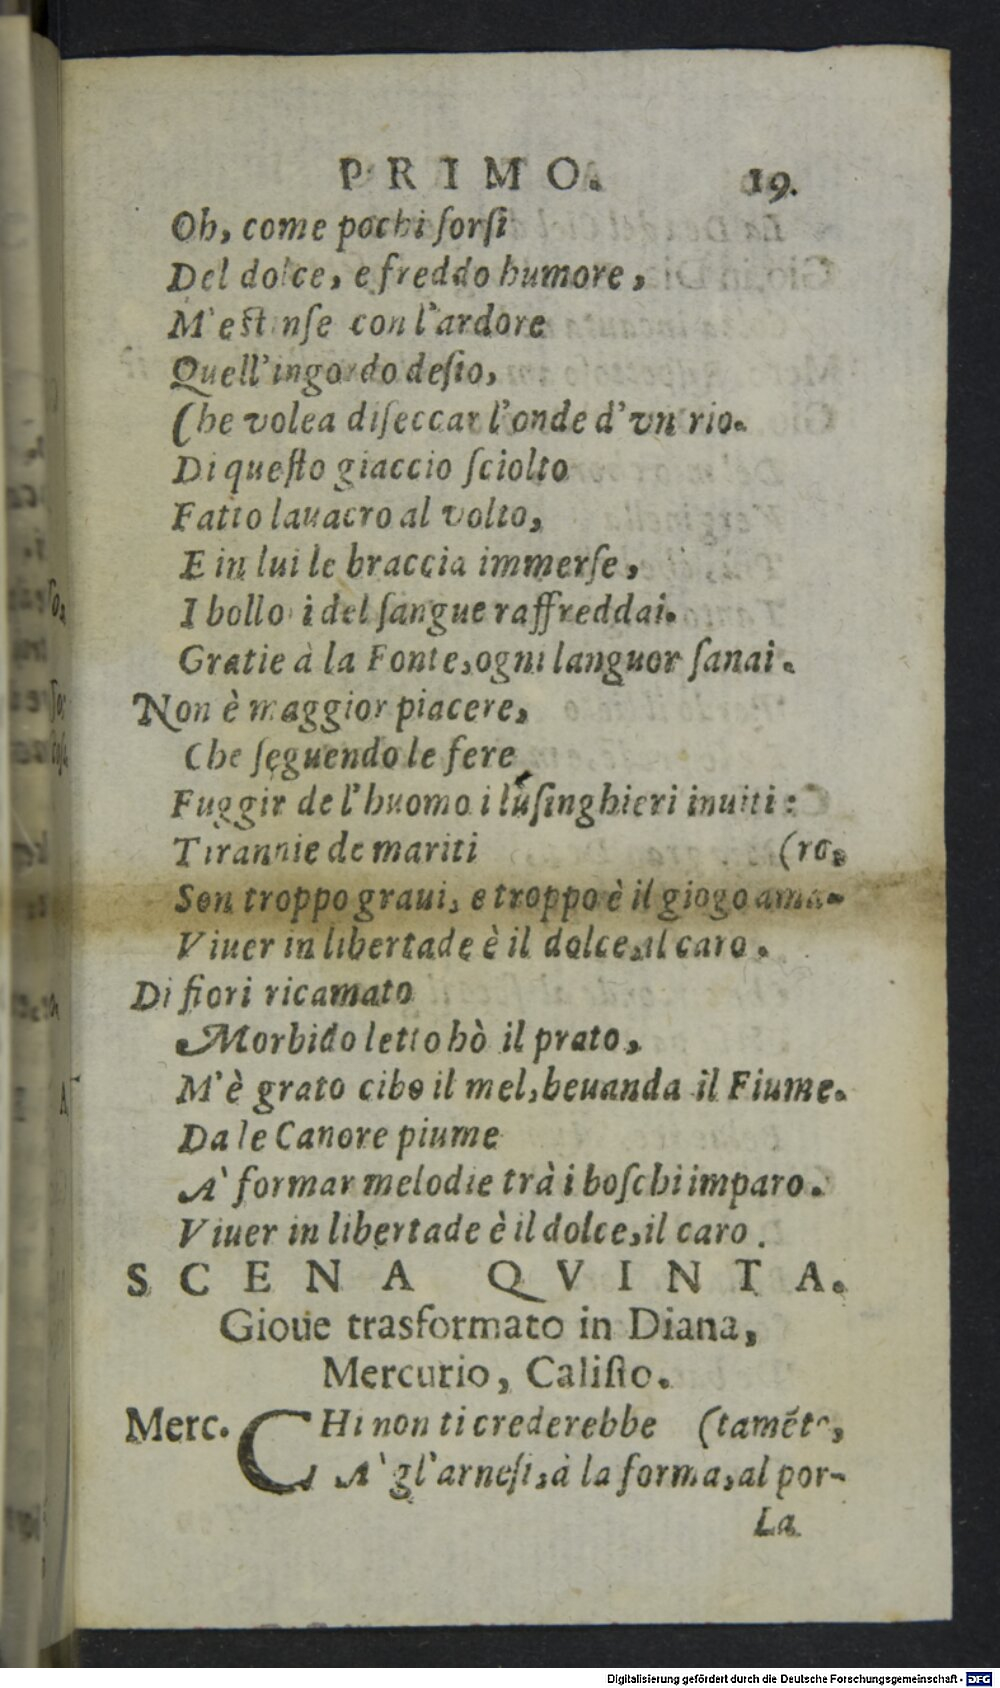 PRIMO. 19.
Oh, come pochi sorsi
Del dolce, e freddo humore,
M'estinse con l'ardore
Quell'ingordo desio,
Che volea diseccar l'onde d'vn rio.
Di questo giaccio sciolto
Fatto lauacro al volto,
E in lui le braccia immerse,
I bollori del sangue raffreddai.
Gratie à la Fonte, ogni languor sanai.
Non è maggior piacere,
Che seguendo le fere
Fuggir de l'huomo i lusinghieri inuiti:
Tirannie de mariti (ro,
Son troppo graui, e troppo è il giogo ama-
Viuer in libertade è il dolce, il caro.
Di fiori ricamato
Morbido letto hò il prato,
M'è grato cibo il mel, beuanda il Fiume.
Da le Canore piume
A' formar melodie trà i boschi imparo.
Viuer in libertade è il dolce, il caro.
SCENA QVINTA.
Gioue trasformato in Diana,
Mercurio, Calisto.
Merc. CHi non ti crederebbe (tamẽto,
A' gl'arnesi, à la forma, al por-
La
Digitalisierung gefördert durch die Deutsche Forschungsgemeinschaft - DFG